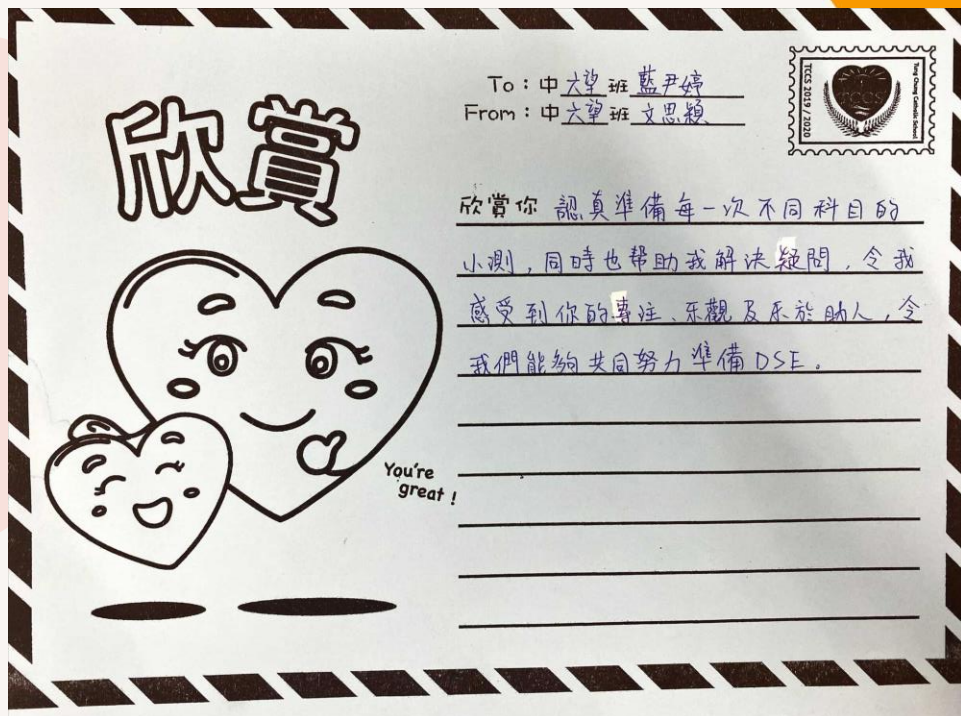 欣賞
To：中六望班 藍尹婷
From：中六望班 文思穎
TCCS 2019 / 2020
TCCS
Tung Chung Catholic School
欣賞你 認真準備每一次不同科目的
小測，同時也帮助我解決疑問，令我
感受到你的專注、乐觀及乐於助人，令
我們能夠共同努力準備DSE。
You're
great !